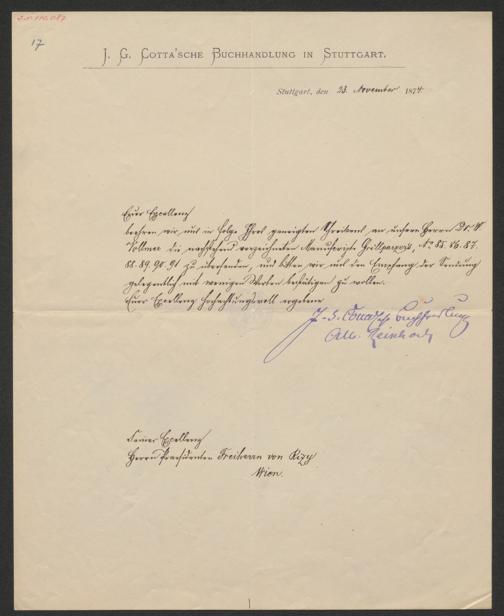 17
J. G. Cotta'sche Buchhandlung in Stuttgart.
Stuttgart, den 23. November 1874
Euer Excellenz
beehren wir uns in Folge Ihres geneigten Schreibens an unsern Herrn Dr. W
Vollmer die nachstehend verzeichneten Manuscripte Grillparzers, No. 85. 86. 87.
88. 89. 90. 91 zu übersenden, und bitten wir uns den Empfang der Sendung
gelegentlich mit wenigen Worten bestätigen zu wollen.
Euer Excellenz hochachtungsvoll ergebene
J. G. Cotta'sche Buchhandlung
Seiner Excellenz
Herrn Praesidenten Freiherrn von Rizy
Wien.